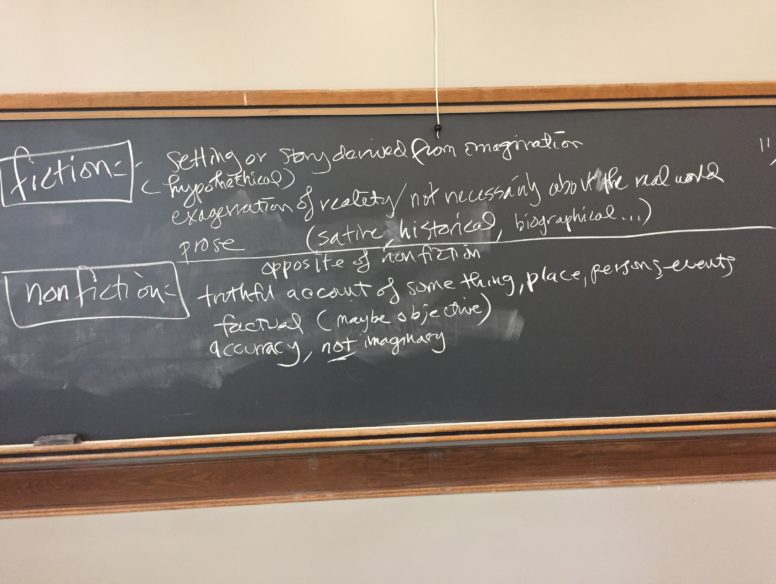 fiction= setting or story derived from imagination
(hypothethical)
exageration of reality/not necessarily about the real world
prose (satire, historical, biographical...)
opposite of nonfiction
nonfiction= truthful account of something, place, persons, events
factual (maybe objective)
accuracy, not imaginary